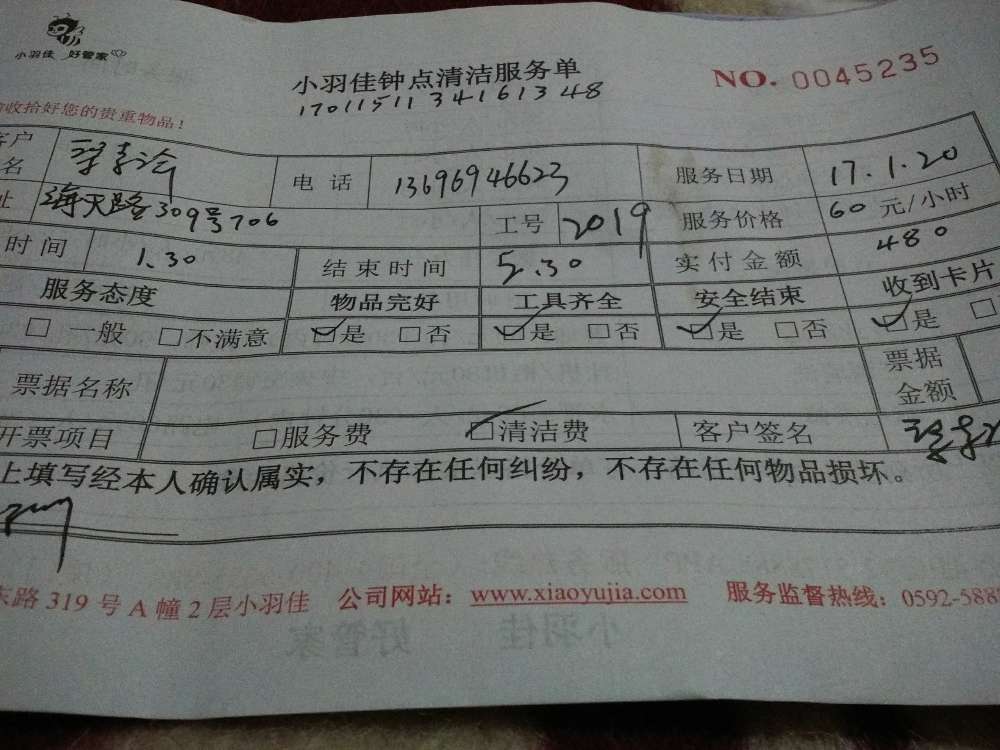 小羽佳 好管家
小羽佳钟点清洁服务单
NO. 0045235
1701151134161348
收拾好您的贵重物品!
客户
名
电话 13696946623 服务日期 17.1.20
址 海天路309号706 工号 2019 服务价格 60 元/小时
时间 1.30 结束时间 5.30 实付金额 480
服务态度 物品完好 工具齐全 安全结束 收到卡片
□ 一般 □不满意 ☑是 □否 ☑是 □否 ☑是 □否 ☑是 □
票据名称 票据
金额
开票项目 □服务费 ☑清洁费 客户签名
上填写经本人确认属实，不存在任何纠纷，不存在任何物品损坏。
东路 319 号 A 幢 2 层小羽佳 公司网站：www.xiaoyujia.com 服务监督热线：0592-588
小羽佳 好管家